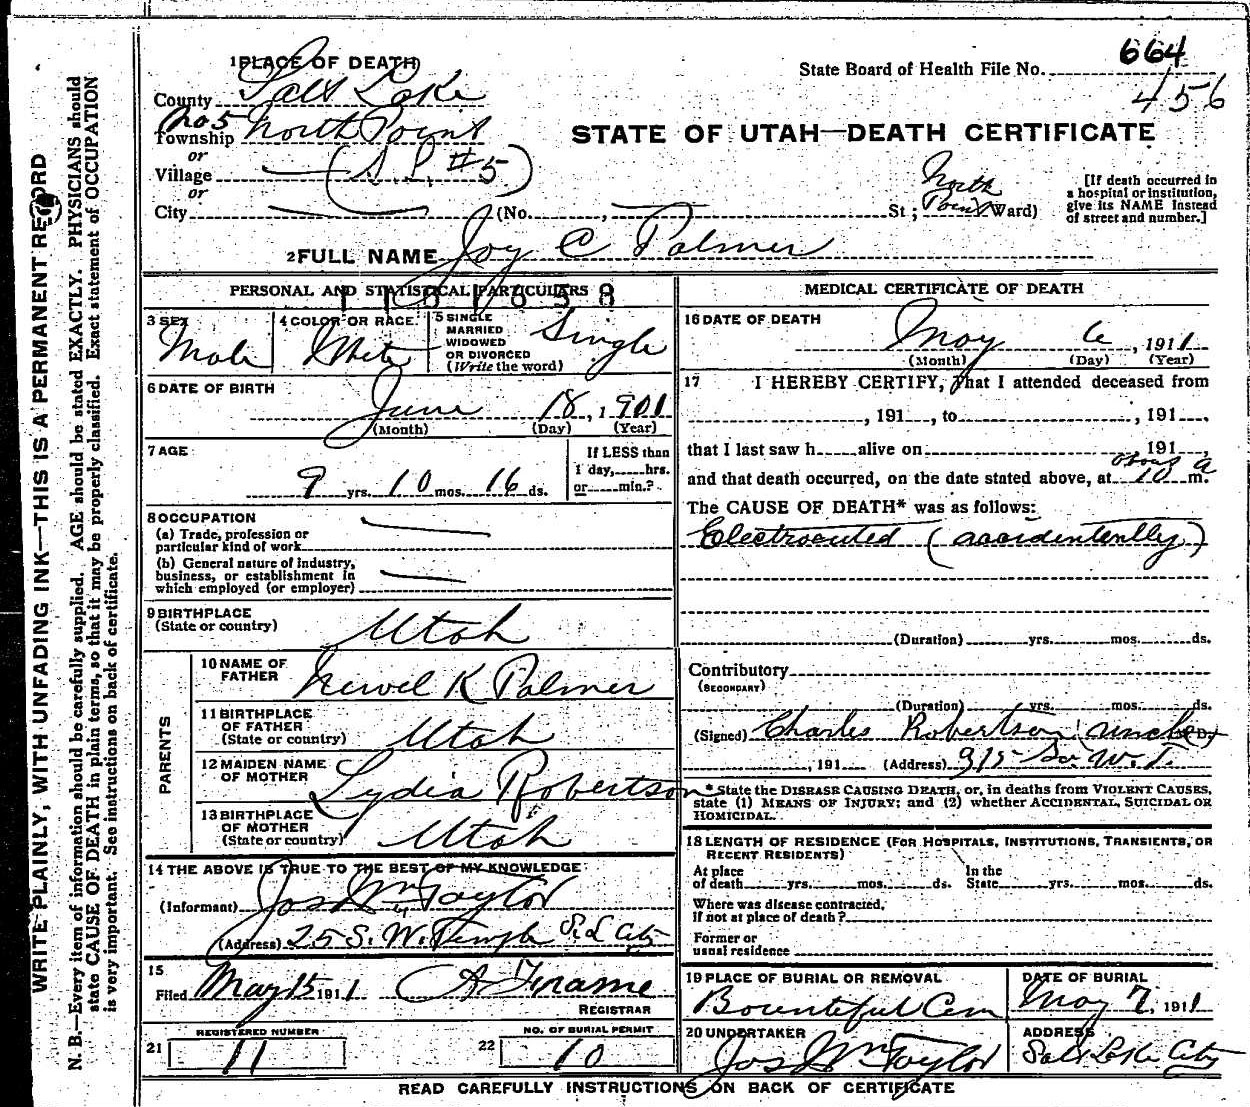 1 PLACE OF DEATH
State Board of Health File No. 664
456
County Salt Lake
No 5
Township North Point
or
Village (S.L. #5)
or
City (No. , St ; North Point Ward)
STATE OF UTAH—DEATH CERTIFICATE
[If death occurred in a hospital or institution, give its NAME instead of street and number.]
2 FULL NAME Joy C Palmer
PERSONAL AND STATISTICAL PARTICULARS
1181858
3 SEX
Male
4 COLOR OR RACE.
White
5 SINGLE
MARRIED
WIDOWED
OR DIVORCED
(Write the word)
Single
6 DATE OF BIRTH
June 18, 1901
(Month) (Day) (Year)
7 AGE
9 yrs. 10 mos. 16 ds.
If LESS than
1 day, hrs.
or min.?
8 OCCUPATION
(a) Trade, profession or
particular kind of work
(b) General nature of industry,
business, or establishment in
which employed (or employer)
9 BIRTHPLACE
(State or country)
Utah
PARENTS
10 NAME OF
FATHER
Newel K Palmer
11 BIRTHPLACE
OF FATHER
(State or country)
Utah
12 MAIDEN NAME
OF MOTHER
Lydia Robertson
13 BIRTHPLACE
OF MOTHER
(State or country)
Utah
14 THE ABOVE IS TRUE TO THE BEST OF MY KNOWLEDGE
(Informant) Jos Wm Taylor
(Address) 25 S. W. Temple S L City
15
Filed May 15 1911
REGISTRAR
REGISTERED NUMBER
21 11
NO. OF BURIAL PERMIT
22 10
MEDICAL CERTIFICATE OF DEATH
16 DATE OF DEATH
May 6, 1911
(Month) (Day) (Year)
17 I HEREBY CERTIFY, That I attended deceased from
, 191 , to , 191 ,
that I last saw h alive on 191
and that death occurred, on the date stated above, at about 10 a m.
The CAUSE OF DEATH* was as follows:
Electrocuted (accidentently)
(Duration) yrs. mos. ds.
Contributory
(SECONDARY)
(Duration) yrs. mos. ds.
(Signed) Charles Robertson uncle
, 191 (Address) 915 So. W. T.
* State the DISEASE CAUSING DEATH, or, in deaths from VIOLENT CAUSES,
state (1) MEANS OF INJURY; and (2) whether ACCIDENTAL, SUICIDAL OR
HOMICIDAL.
18 LENGTH OF RESIDENCE (FOR HOSPITALS, INSTITUTIONS, TRANSIENTS, OR
RECENT RESIDENTS)
At place
of death yrs. mos. ds.
In the
State yrs. mos. ds.
Where was disease contracted,
if not at place of death?
Former or
usual residence
19 PLACE OF BURIAL OR REMOVAL
Bountiful Cem
DATE OF BURIAL
May 7, 1911
20 UNDERTAKER
Jos Wm Taylor
ADDRESS
Salt Lake City
READ CAREFULLY INSTRUCTIONS ON BACK OF CERTIFICATE
WRITE PLAINLY, WITH UNFADING INK—THIS IS A PERMANENT RECORD
N. B.—Every item of information should be carefully supplied. AGE should be stated EXACTLY. PHYSICIANS should
state CAUSE OF DEATH in plain terms, so that it may be properly classified. Exact statement of OCCUPATION
is very important. See instructions on back of certificate.